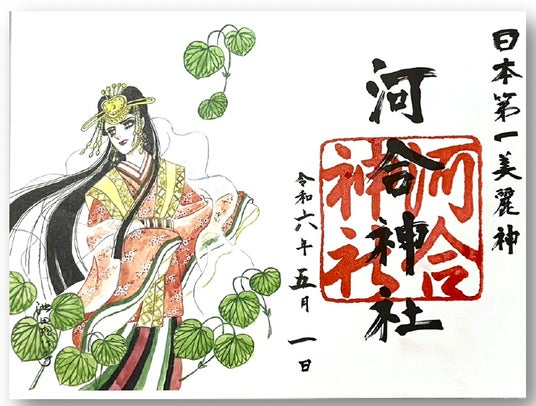 日本第一美麗神
河合神社
河合
神社
令和六年五月一日